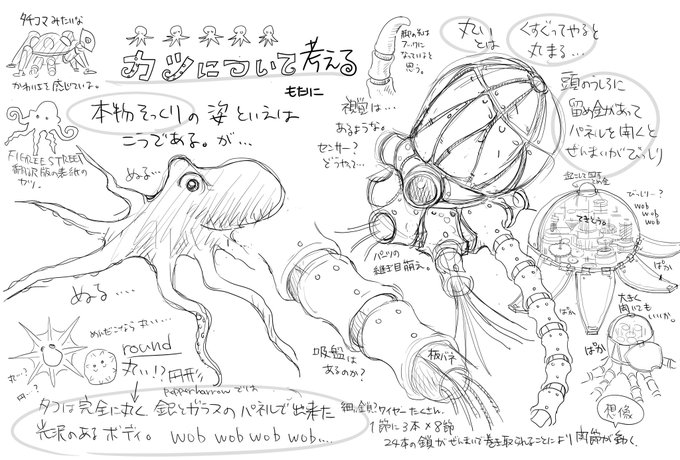 タチコマ みたいな
かわいさを感じていいよ。
カツについて考える
ももに
本物そっくりの姿といえば
こうである。が…
FIGELEE STREET
翻訳版の表紙の
ヤツ。
ぬる…
ぬる....
脚の先は
フックに
なっていると
思う。
視覚は…
あるような。
センサー？
どうやって…
丸い
とは
くすぐってやると
丸まる…
頭のうしろに
留め金があって
パネルを開くと
ぜんまいがびっしり
びっしり…？
wob
wob
wob
てきとう。
ぱか
ぱか
パーツの
継ぎ目萌え。
大きく
開いても
いいか。
ぱか
想像
吸盤は
あるのか？
板バネ
めんだこなら丸い…
round
丸い!? 円形
丸…？
円…？
Pepperharrow では
タコは完全に丸く 銀とガラスのパネルで出来た
光沢のあるボディ。 wob wob wob wob....
細い鎖？ワイヤーたくさん。
1節に3本×8節
24本の鎖がぜんまいで巻き取られることにより関節が動く。